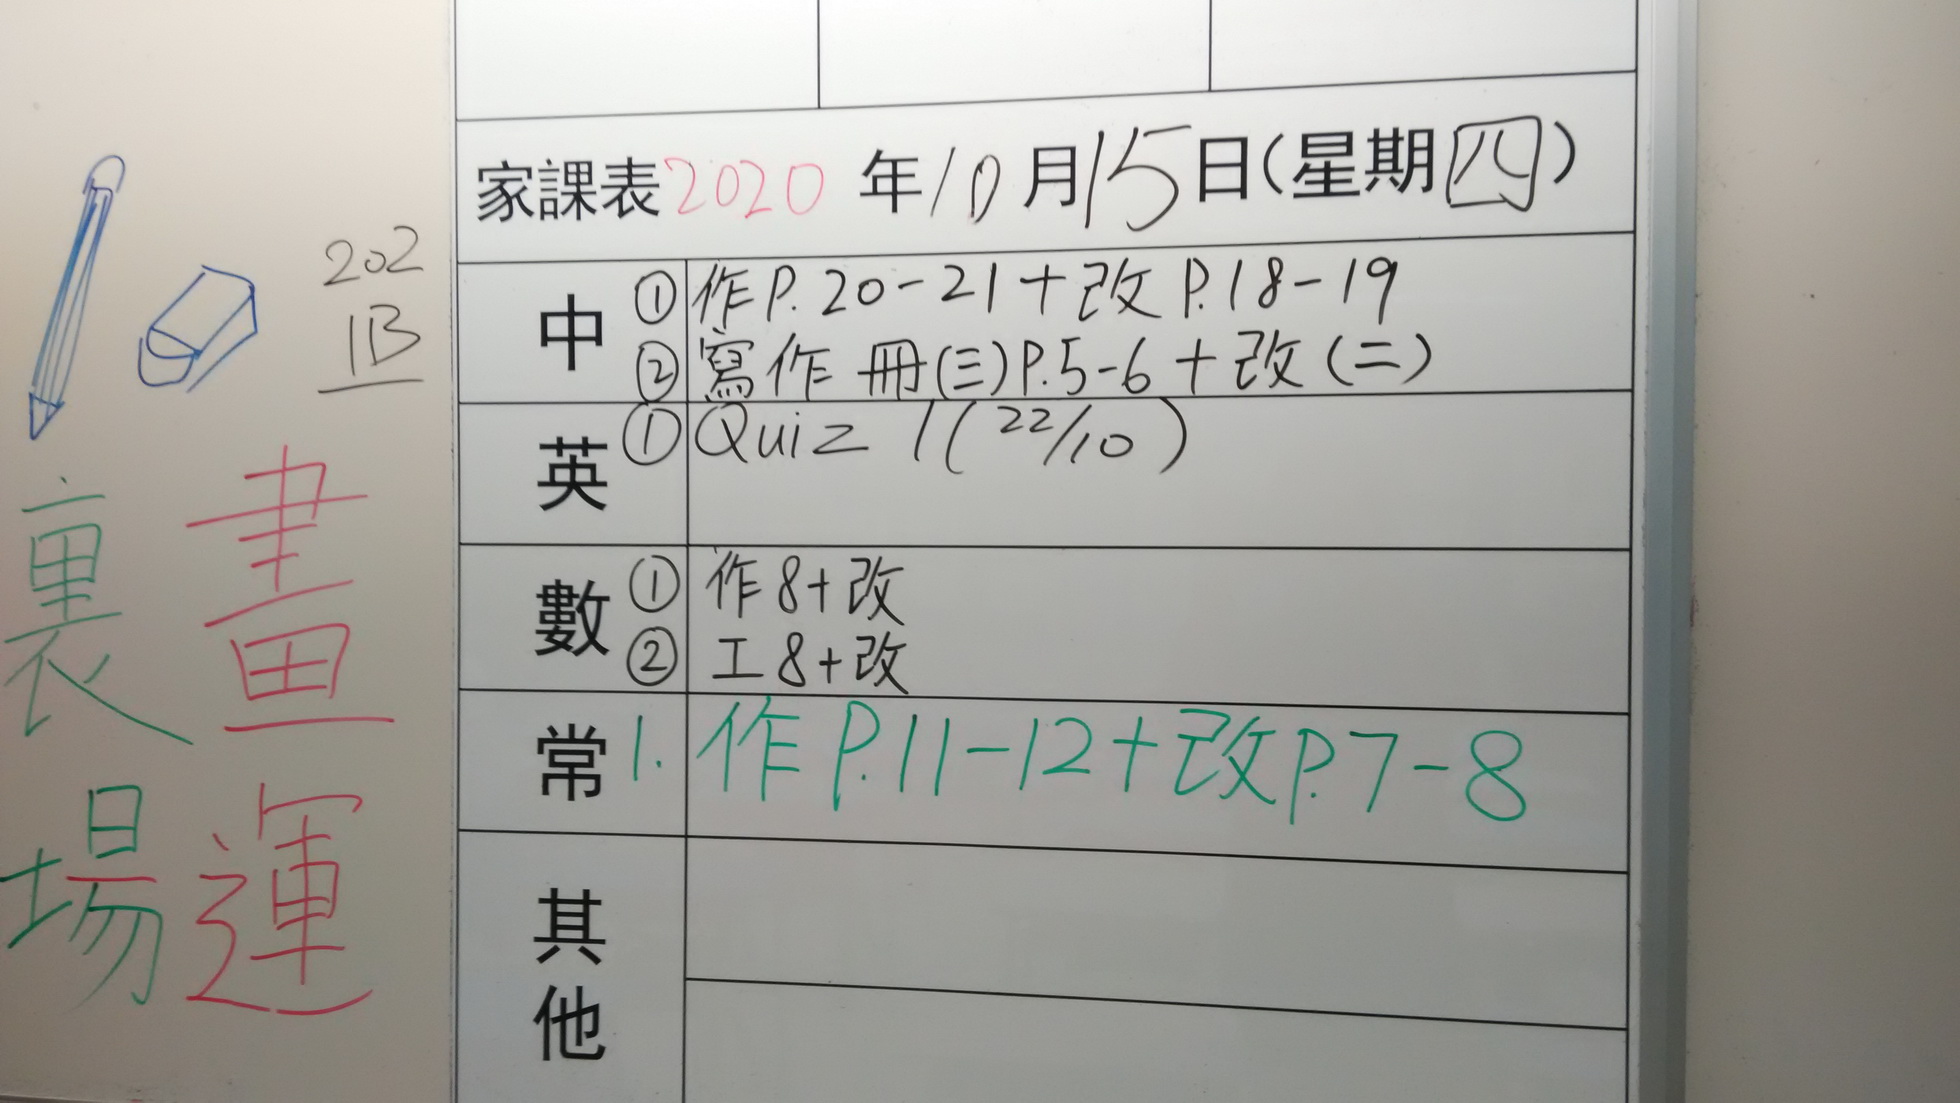 202
1B
畫 裏
運 場
家課表 2020 年 10 月 15 日(星期四)
中 ① 作 P. 20-21 + 改 P. 18-19
② 寫作冊(三) P.5-6 + 改(二)
英 ① Quiz 1 (22/10)
數 ① 作8+改
② 工8+改
常 1. 作 P.11-12+改P.7-8
其他